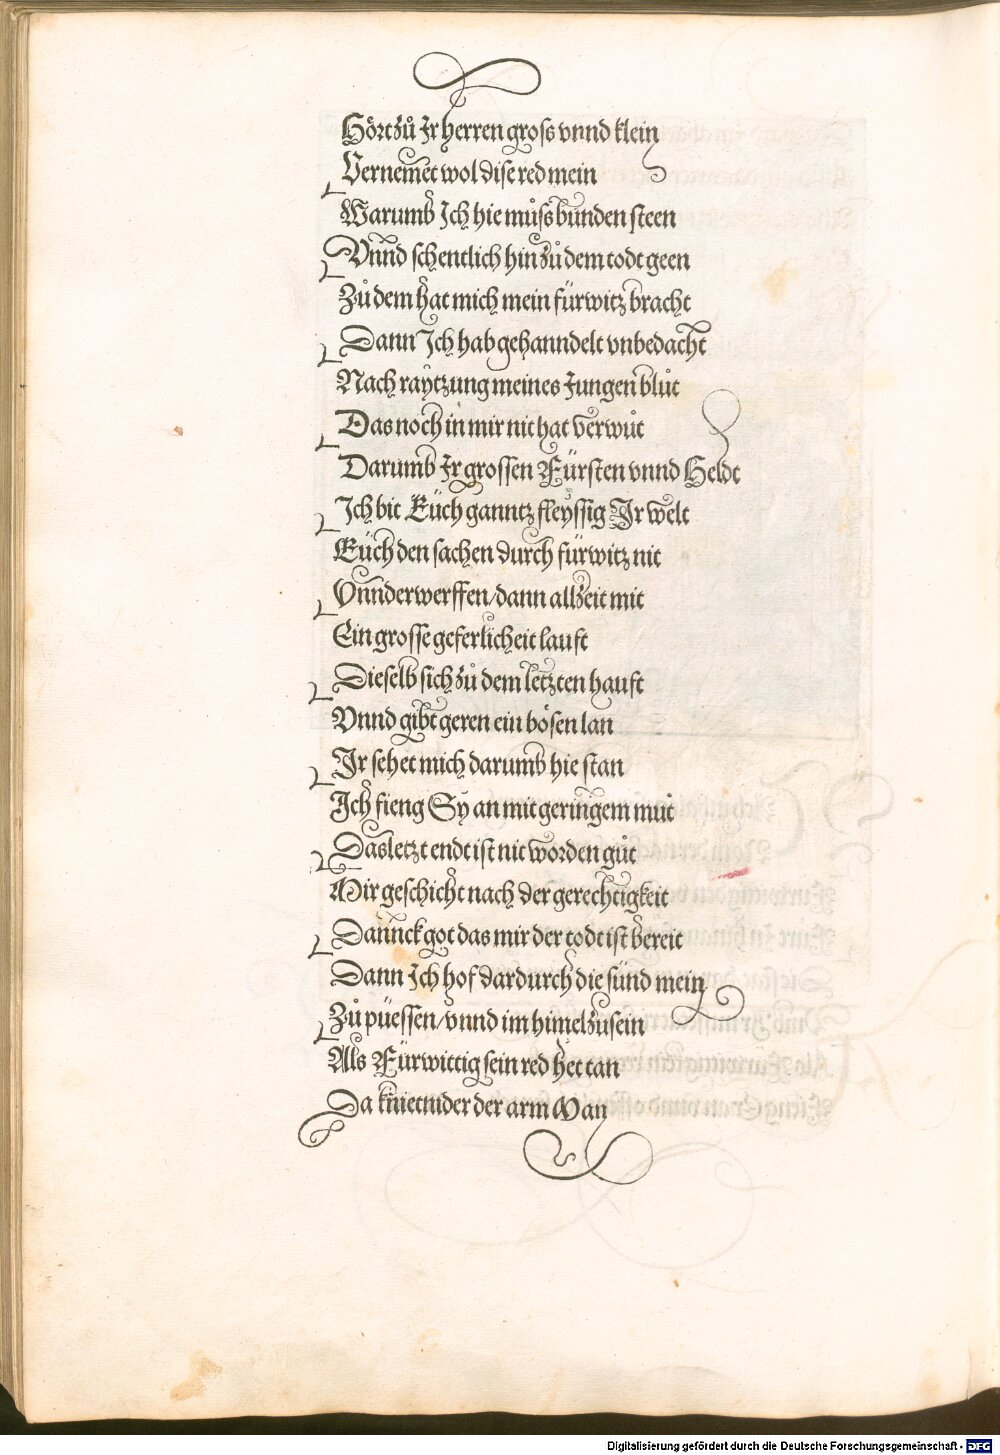 Hört zů Ir herren gross vnnd klein
Vernemet wol dise red mein
Warumb Ich hie můss bunden steen
Vnnd schentlich hin zů dem todt geen
Zů dem hat mich mein fürwitz bracht
Dann Ich hab gehanndelt vnbedacht
Nach raytzung meines Iungen blůt
Das noch in mir nit hat verwůt
Darumb Ir grossen Fürsten vnnd Heldt
Ich bit Eüch ganntz fleyssig Ir welt
Eüch den sachen durch fürwitz nit
Vnnderwerffen/dann allzeit mit
Ein grosse geferlicheit lauft
Dieselb sich zů dem letzten hauft
Vnnd gibt geren ein bösen lan
Ir sehet mich darumb hie stan
Ich fieng Sy an mit geringem můt
Das letzt endt ist nit worden gůt
Mir geschicht nach der gerechtigkeit
Dannck got das mir der todt ist bereit
Dann Ich hof dardurch die sünd mein
Zů püessen/vnnd im himel zusein
Als Fürwittig sein red het tan
Da kniet nider der arm Man
Digitalisierung gefördert durch die Deutsche Forschungsgemeinschaft - DFG